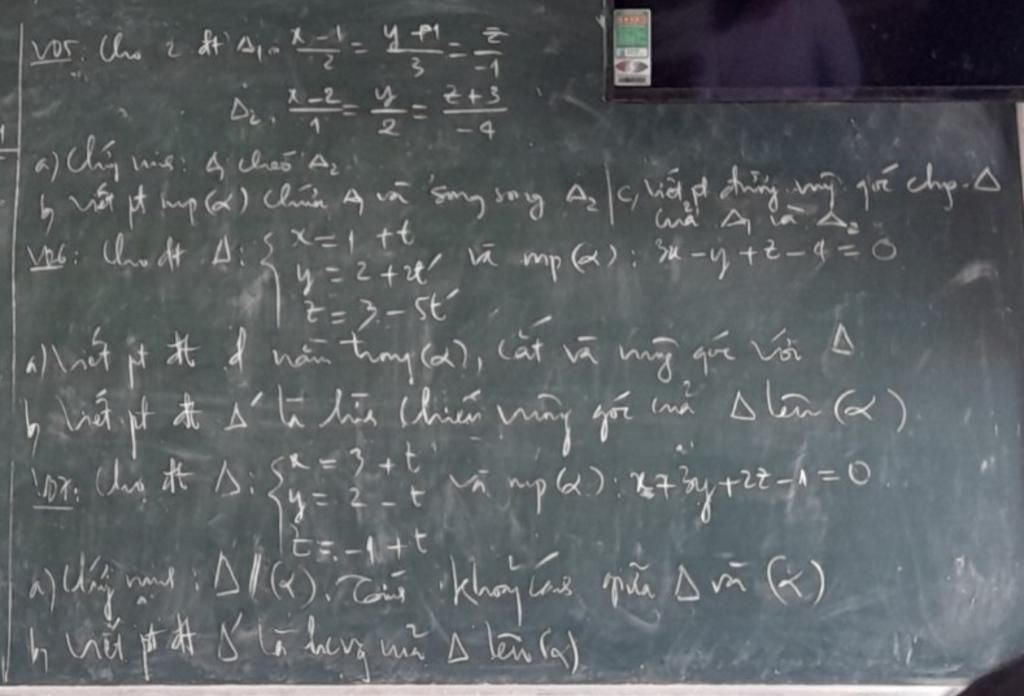 VD5: Cho 2 đt Δ1: (x-1)/2 = (y+1)/3 = z/-1
Δ2: (x-2)/1 = y/2 = (z+3)/-4
a) Chứng minh: Δ1 chéo Δ2
b) viết pt mp(α) chứa Δ1 và song song Δ2 | c) viết pt đường vuông góc chung Δ
của Δ1 và Δ2
VD6: Cho đt Δ: { x = 1 + t
y = 2 + 2t và mp(α): 3x - y + z - 4 = 0
z = 3 - 5t
a) Viết pt đt d nằm trong (α), cắt và vuông góc với Δ
b) Viết pt đt Δ' là hình chiếu vuông góc của Δ lên (α)
VD7: Cho đt Δ: { x = 3 + t
y = 2 - t và mp(α): x + 3y + 2z - 1 = 0
z = -1 + t
a) Chứng minh: Δ // (α). Tính khoảng cách giữa Δ và (α)
b) viết pt đt Δ' là hcvg của Δ lên (α)